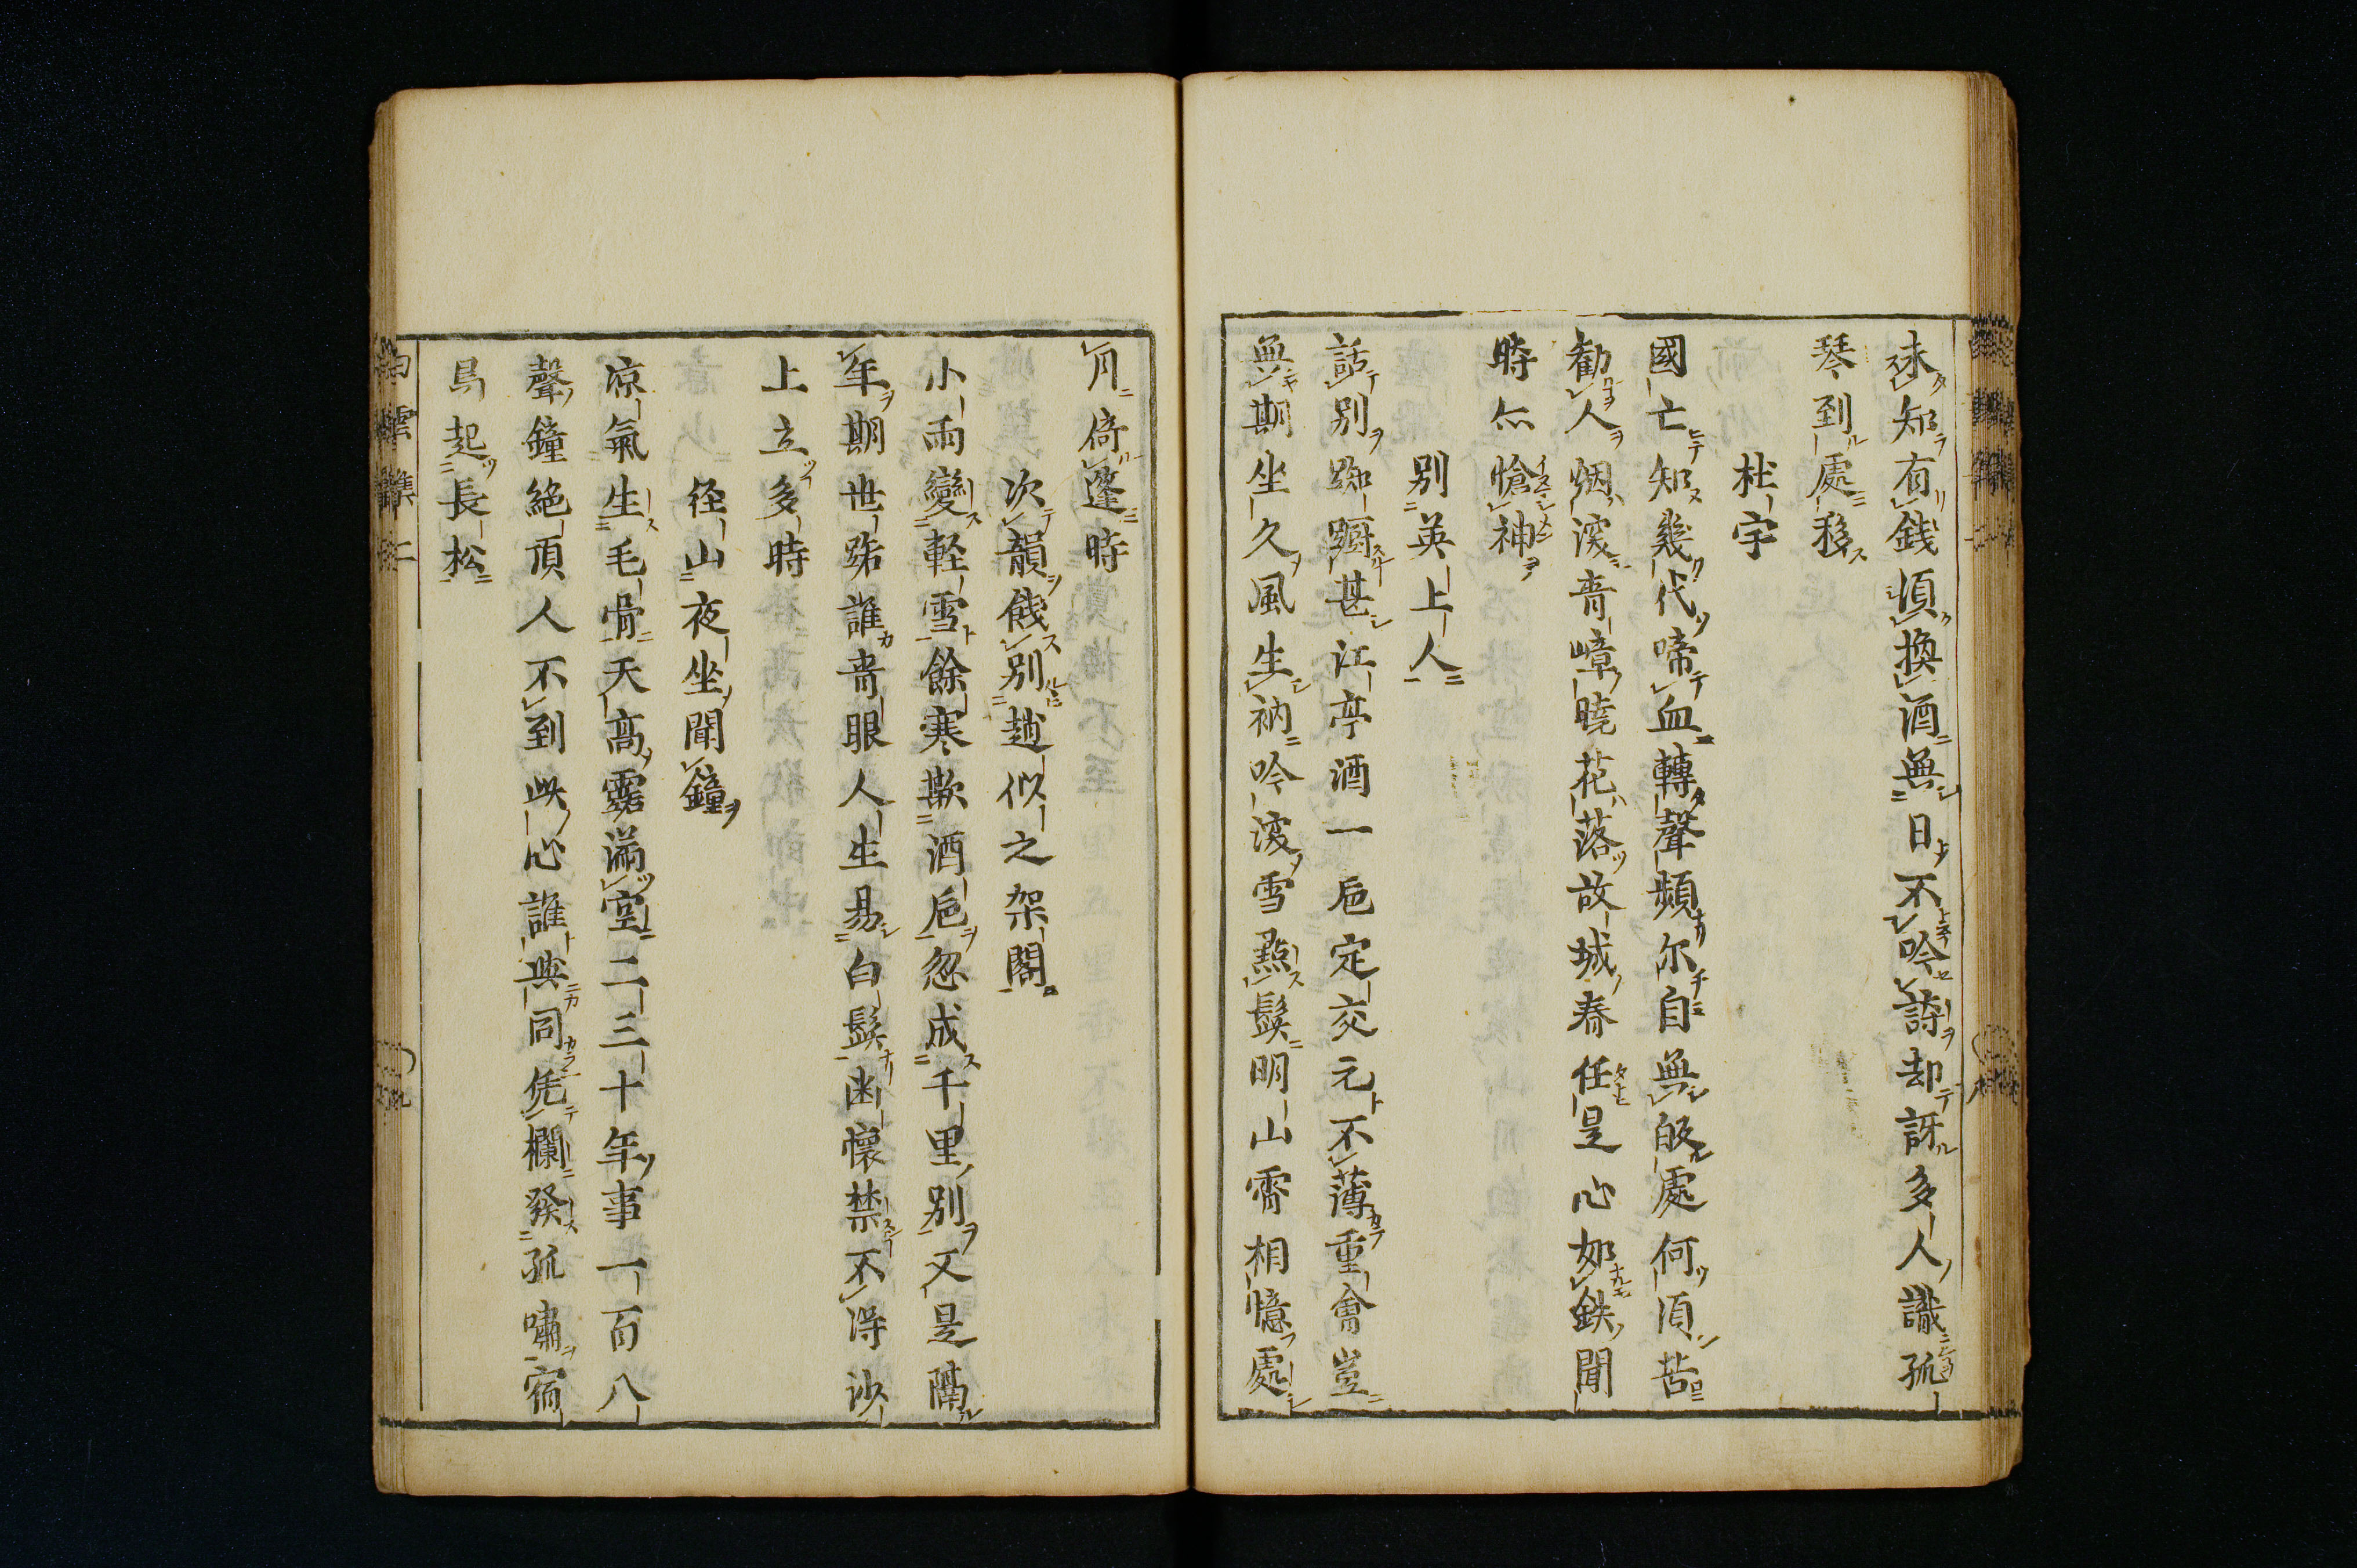 未知有銭須換酒無日不吟詩却訝多人識孤
琴到處移
杜宇
國亡知幾代啼血轉聲頻尓自無皈處何須苦
勸人烟深青嶂曉花落故城春任是心如鉄聞
時亦愴神
別英上人
話別踟蹰甚江亭酒一巵定交元不薄重會豈
無期坐久風生衲吟深雪點鬂明山霄相憶處
月倚蓬時
次韻餞別趙似之架閣
小雨變軽雪餘寒欺酒巵忽成千里別又是隔
年期世路誰青眼人生易白鬂幽懷禁不得沙
上立多時
径山夜坐聞鐘
凉氣生毛骨天高露滿空二三十年事一百八
聲鐘絶頂人不到此心誰與同凭欄發孤嘯宿
鳥起長松
白雲集二